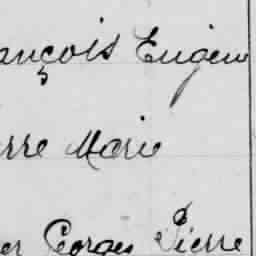 ançois Eugène
rre Marie
er Georges Pierre